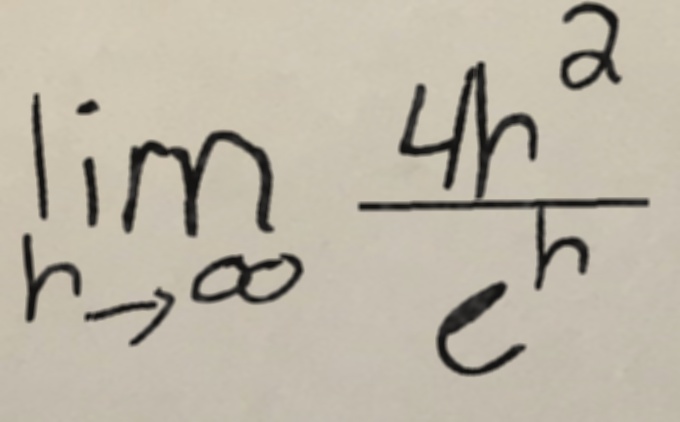 lim h→∞ 4h² / eʰ